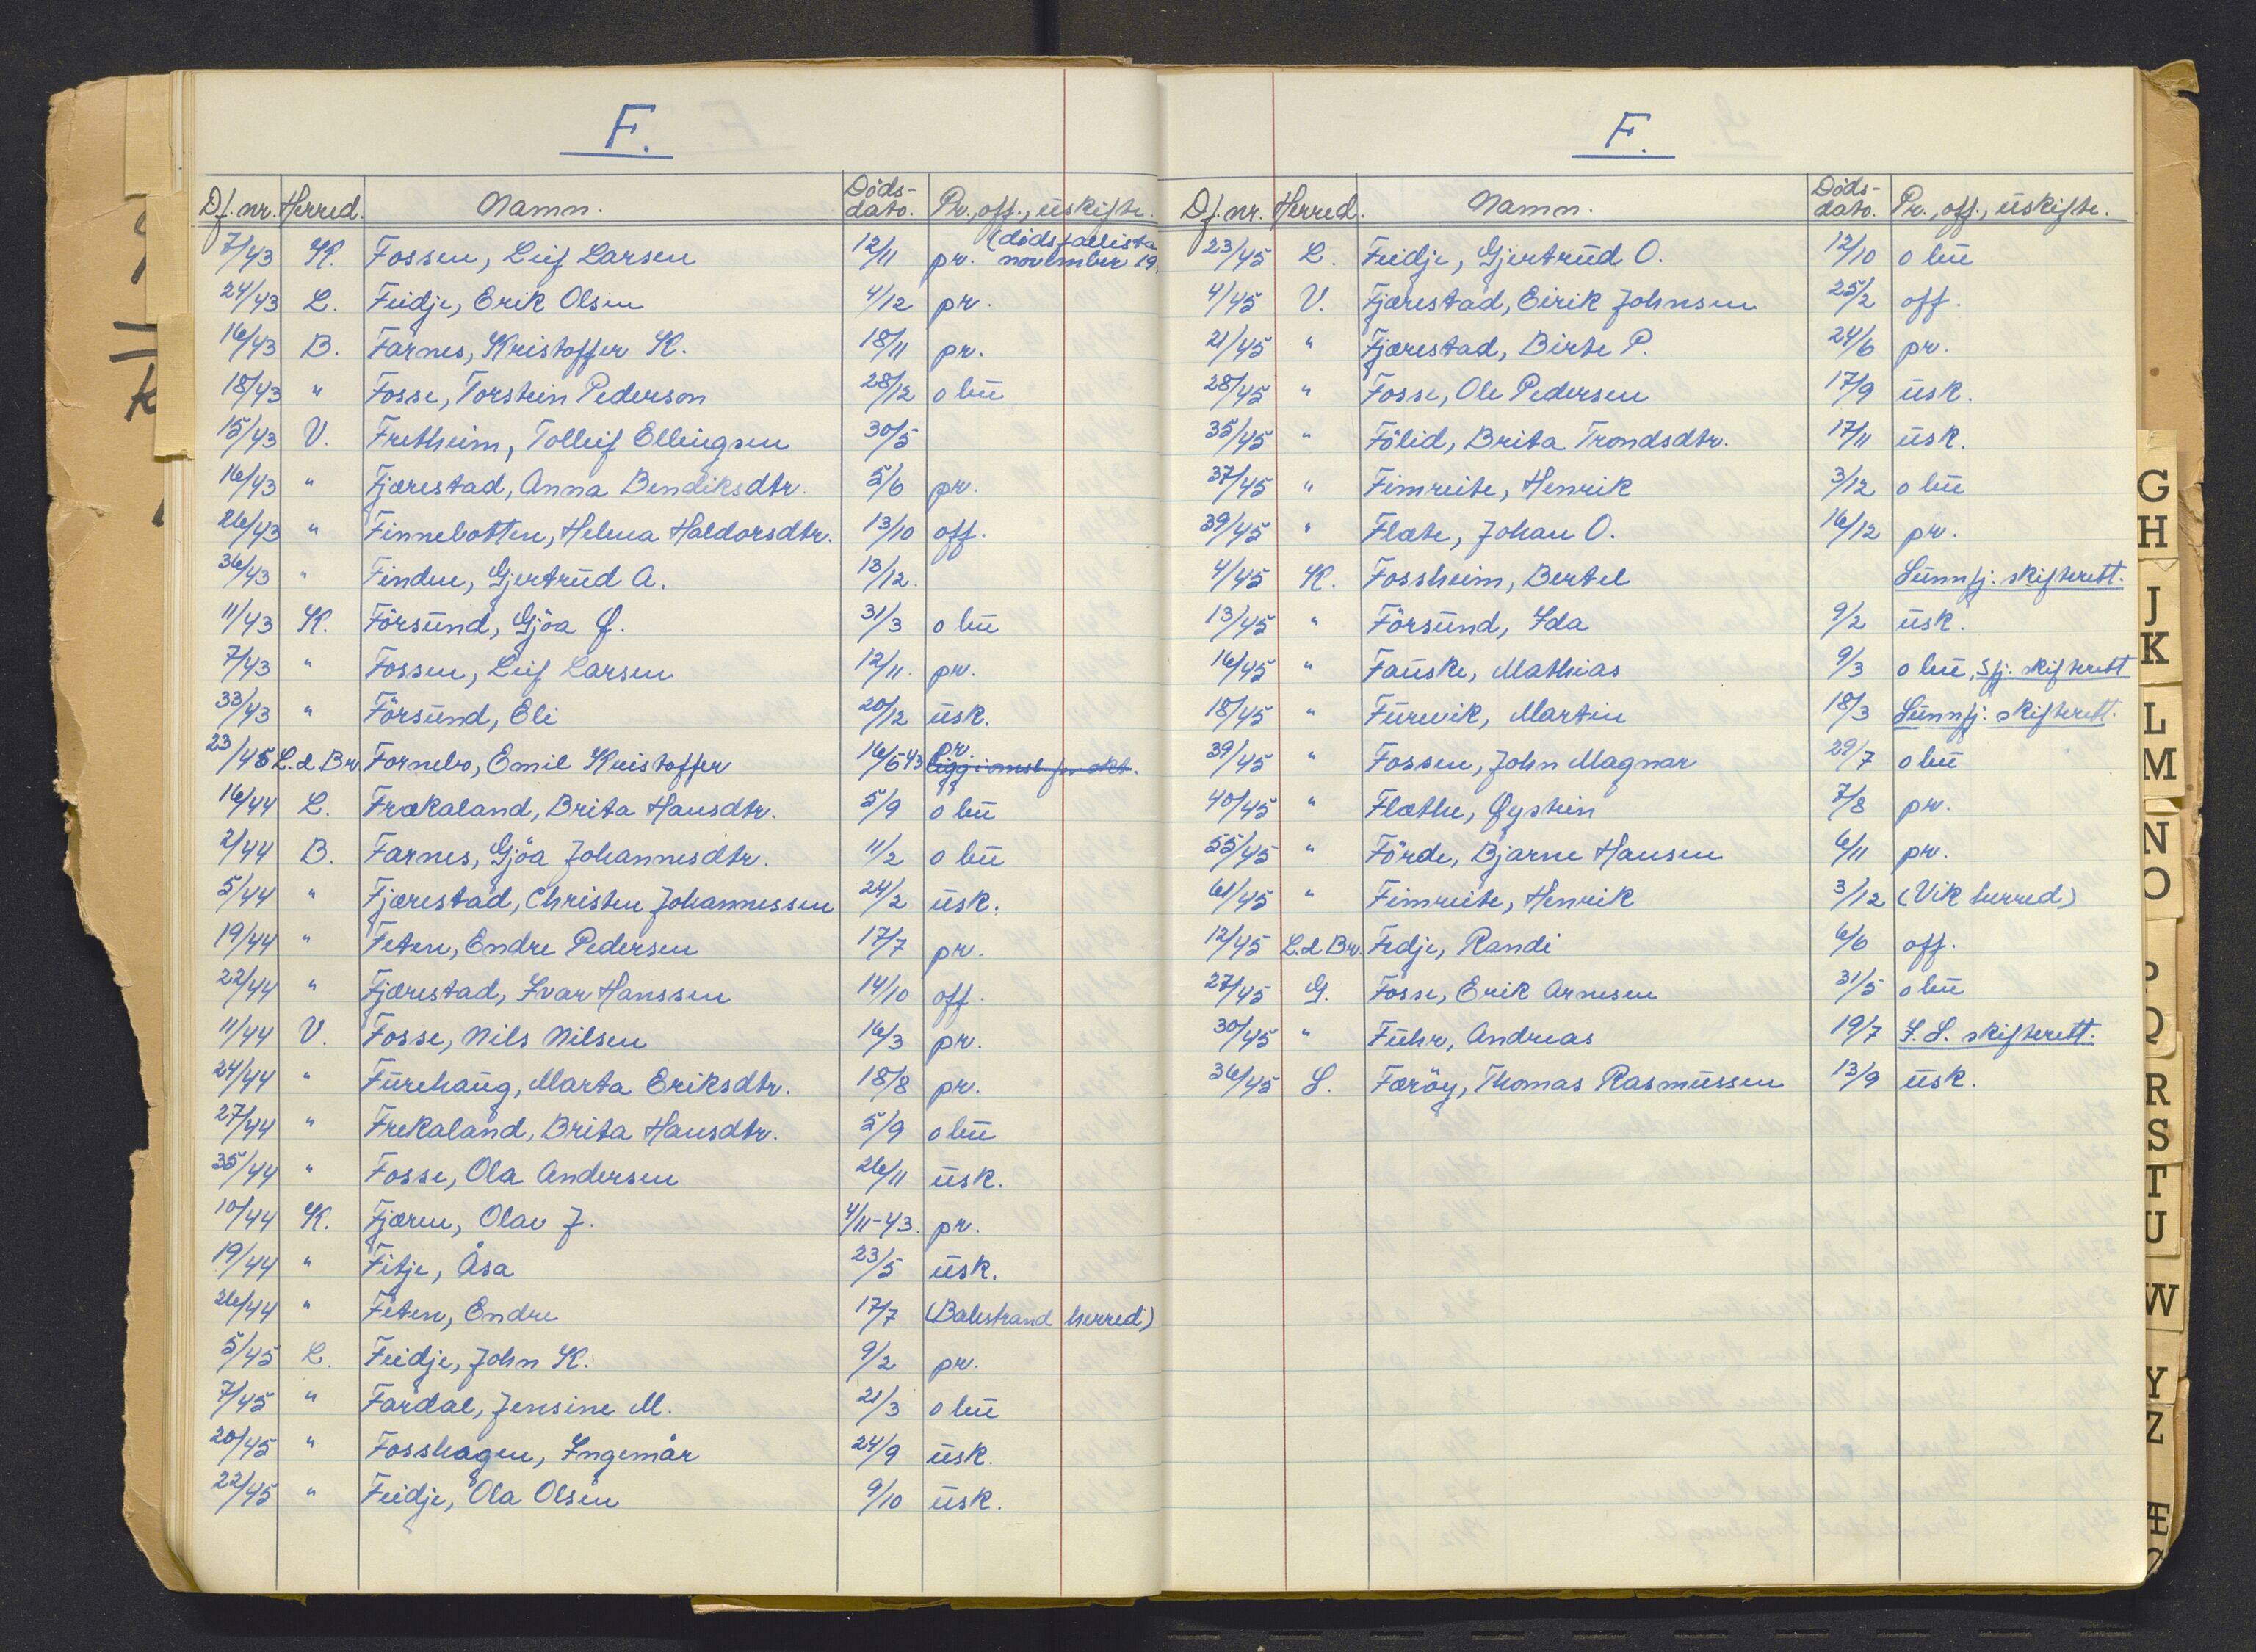 F.
Df. nr. Herred. Namn. Døds-dato. Pr., off., uskifte.
7/43 K. Fossen, Leif Larsen 12/11 pr. (dødsfallista november 19
24/43 L. Feidje, Erik Olsen 4/12 pr.
16/43 B. Farnes, Kristoffer K. 18/11 pr.
18/43 " Fosse, Torstein Pederson 28/12 o bu
15/43 V. Fretheim, Tolleif Ellingsen 30/5
16/43 " Fjærestad, Anna Bendiksdtr. 5/6 pr.
26/43 " Finnebotten, Helena Haldorsdtr. 13/10 off.
36/43 " Finden, Gjertrud A. 13/12.
11/43 K. Försund, Gjöa Ø. 31/3 o bu
7/43 " Fossen, Leif Larsen 12/11. pr.
33/43 " Försund, Eli 20/12 usk.
23/45 L. d Br Fornebo, Emil Kristoffer 16/5-43 pr.
16/44 L. Frækaland, Brita Hansdtr. 5/9 o bu
2/44 B. Farnes, Gjöa Johannesdtr. 11/2 o bu
5/44 " Fjærestad, Christen Johannessen 24/2 usk.
19/44 " Feten, Endre Pedersen 17/7 pr.
22/44 " Fjærestad, Ivar Hanssen 14/10 off.
11/44 V. Fosse, Nils Nilsen 16/3 pr.
24/44 " Furehaug, Marta Eriksdtr. 18/8 pr.
27/44 " Frekaland, Brita Hansdtr. 5/9 o bu
35/44 " Fosse, Ola Andersen 26/11 usk.
10/44 K. Fjæren, Olav J. 4/11-43. pr.
19/44 " Fitje, Åsa 23/5 usk.
26/44 " Feten, Endre 17/7 (Balestrand herred)
5/45 L. Feidje, John K. 9/2 pr.
7/45 " Fardal, Jensine M. 21/3 o bu
20/45 " Fosshagen, Ingemår 24/9 usk.
22/45 " Feidje, Ola Olsen 9/10 usk.
F.
Df. nr. Herred. Namn. Døds-dato. Pr., off., uskifte.
23/45 L. Feidje, Gjertrud O. 12/10 o bu
4/45 V. Fjærestad, Eirik Johnsen 25/2 off.
21/45 " Fjærestad, Birte P. 24/6 pr.
28/45 " Fosse, Ole Pedersen 17/9 usk.
35/45 " Fölid, Brita Trondsdtr. 17/11 usk.
37/45 " Fimreite, Henrik 3/12 o bu
39/45 " Flæte, Johan O. 16/12 pr.
4/45 K. Fossheim, Bertel Sunnfj. skifterett.
13/45 " Försund, Ida 9/2 usk.
16/45 " Fauske, Mathias 9/3 o bu, Sfj. skifterett
18/45 " Furevik, Martin 18/3 Sunnfj. skifterett.
39/45 " Fossen, John Magnar 29/7 o bu
40/45 " Flæthe, Øystein 7/8 pr.
55/45 " Förde, Bjarne Hansen 6/11 pr.
61/45 " Fimreite, Henrik 3/12 (Vik herred)
12/45 L. d Br. Fedje, Randi 6/6 off.
27/45 G. Fosse, Erik Arnesen 31/5 o bu
30/45 " Fuhr, Andreas 19/7 I. S. skifterett.
36/45 S. Færöy, Thomas Rasmussen 13/9 usk.
G
H
J
K
L
M
N
O
P
Q
R
S
T
U
W
Y
Z
Æ
Ø